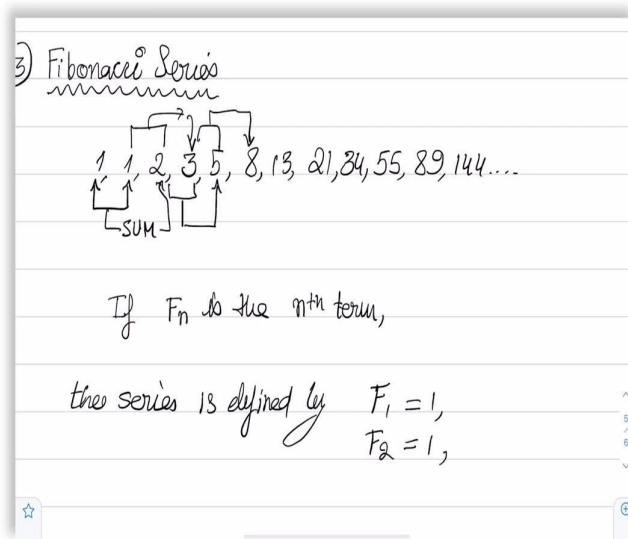 3) Fibonacci Series
1, 1, 2, 3, 5, 8, 13, 21, 34, 55, 89, 144....
SUM
If Fn is the nth term,
the series is defined by F1 = 1,
F2 = 1,
5
6